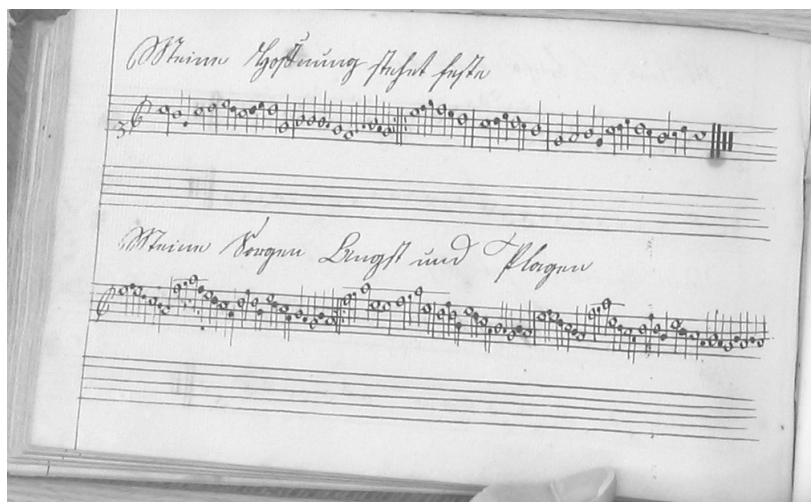 Meine Hoffnung stehet feste
3
Meine Sorgen Angst und Plagen